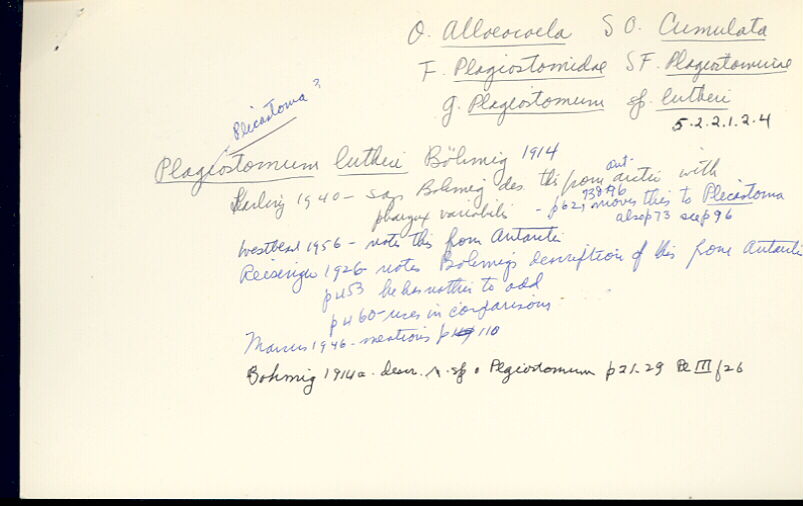 O. Alloeocoela SO. Cumulata
F. Plagiostomidae SF. Plagiostominae
g. Plagiostomum sp. lutheri
5.2.2.1.2.4
Plicastoma ?
Plagiostomum lutheri Böhmig 1914
Karling 1940 - says Bohmig des. this from antarctic with
pharynx variabilis - p62, 73876, moves this to Plicastoma
also p73 see p96
Westblad 1956 - note this from Antarctic
Reisinger 1926 - notes Bohmig's description of this from Antarctic
p453 he has nothing to add
p460 - uses in comparisons
Marcus 1946 - mentions p 110
Bohmig 1914a - descr. n. sp. Plagiostomum p21-29 Pl III f26